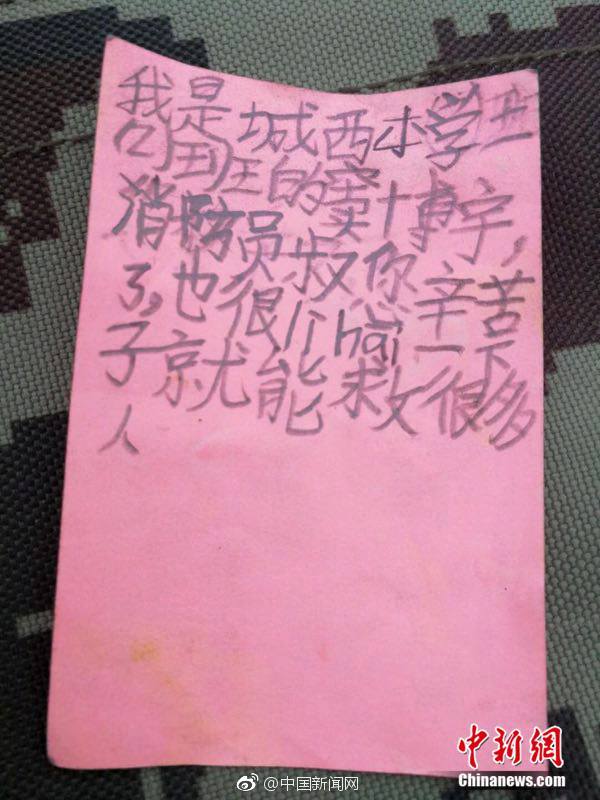 我是城西小学一
(4)班的窦博宇,
消防员叔叔你辛苦
了,也很厉hai,一下
子就能救很多
人
中新网
Chinanews.com
@中国新闻网